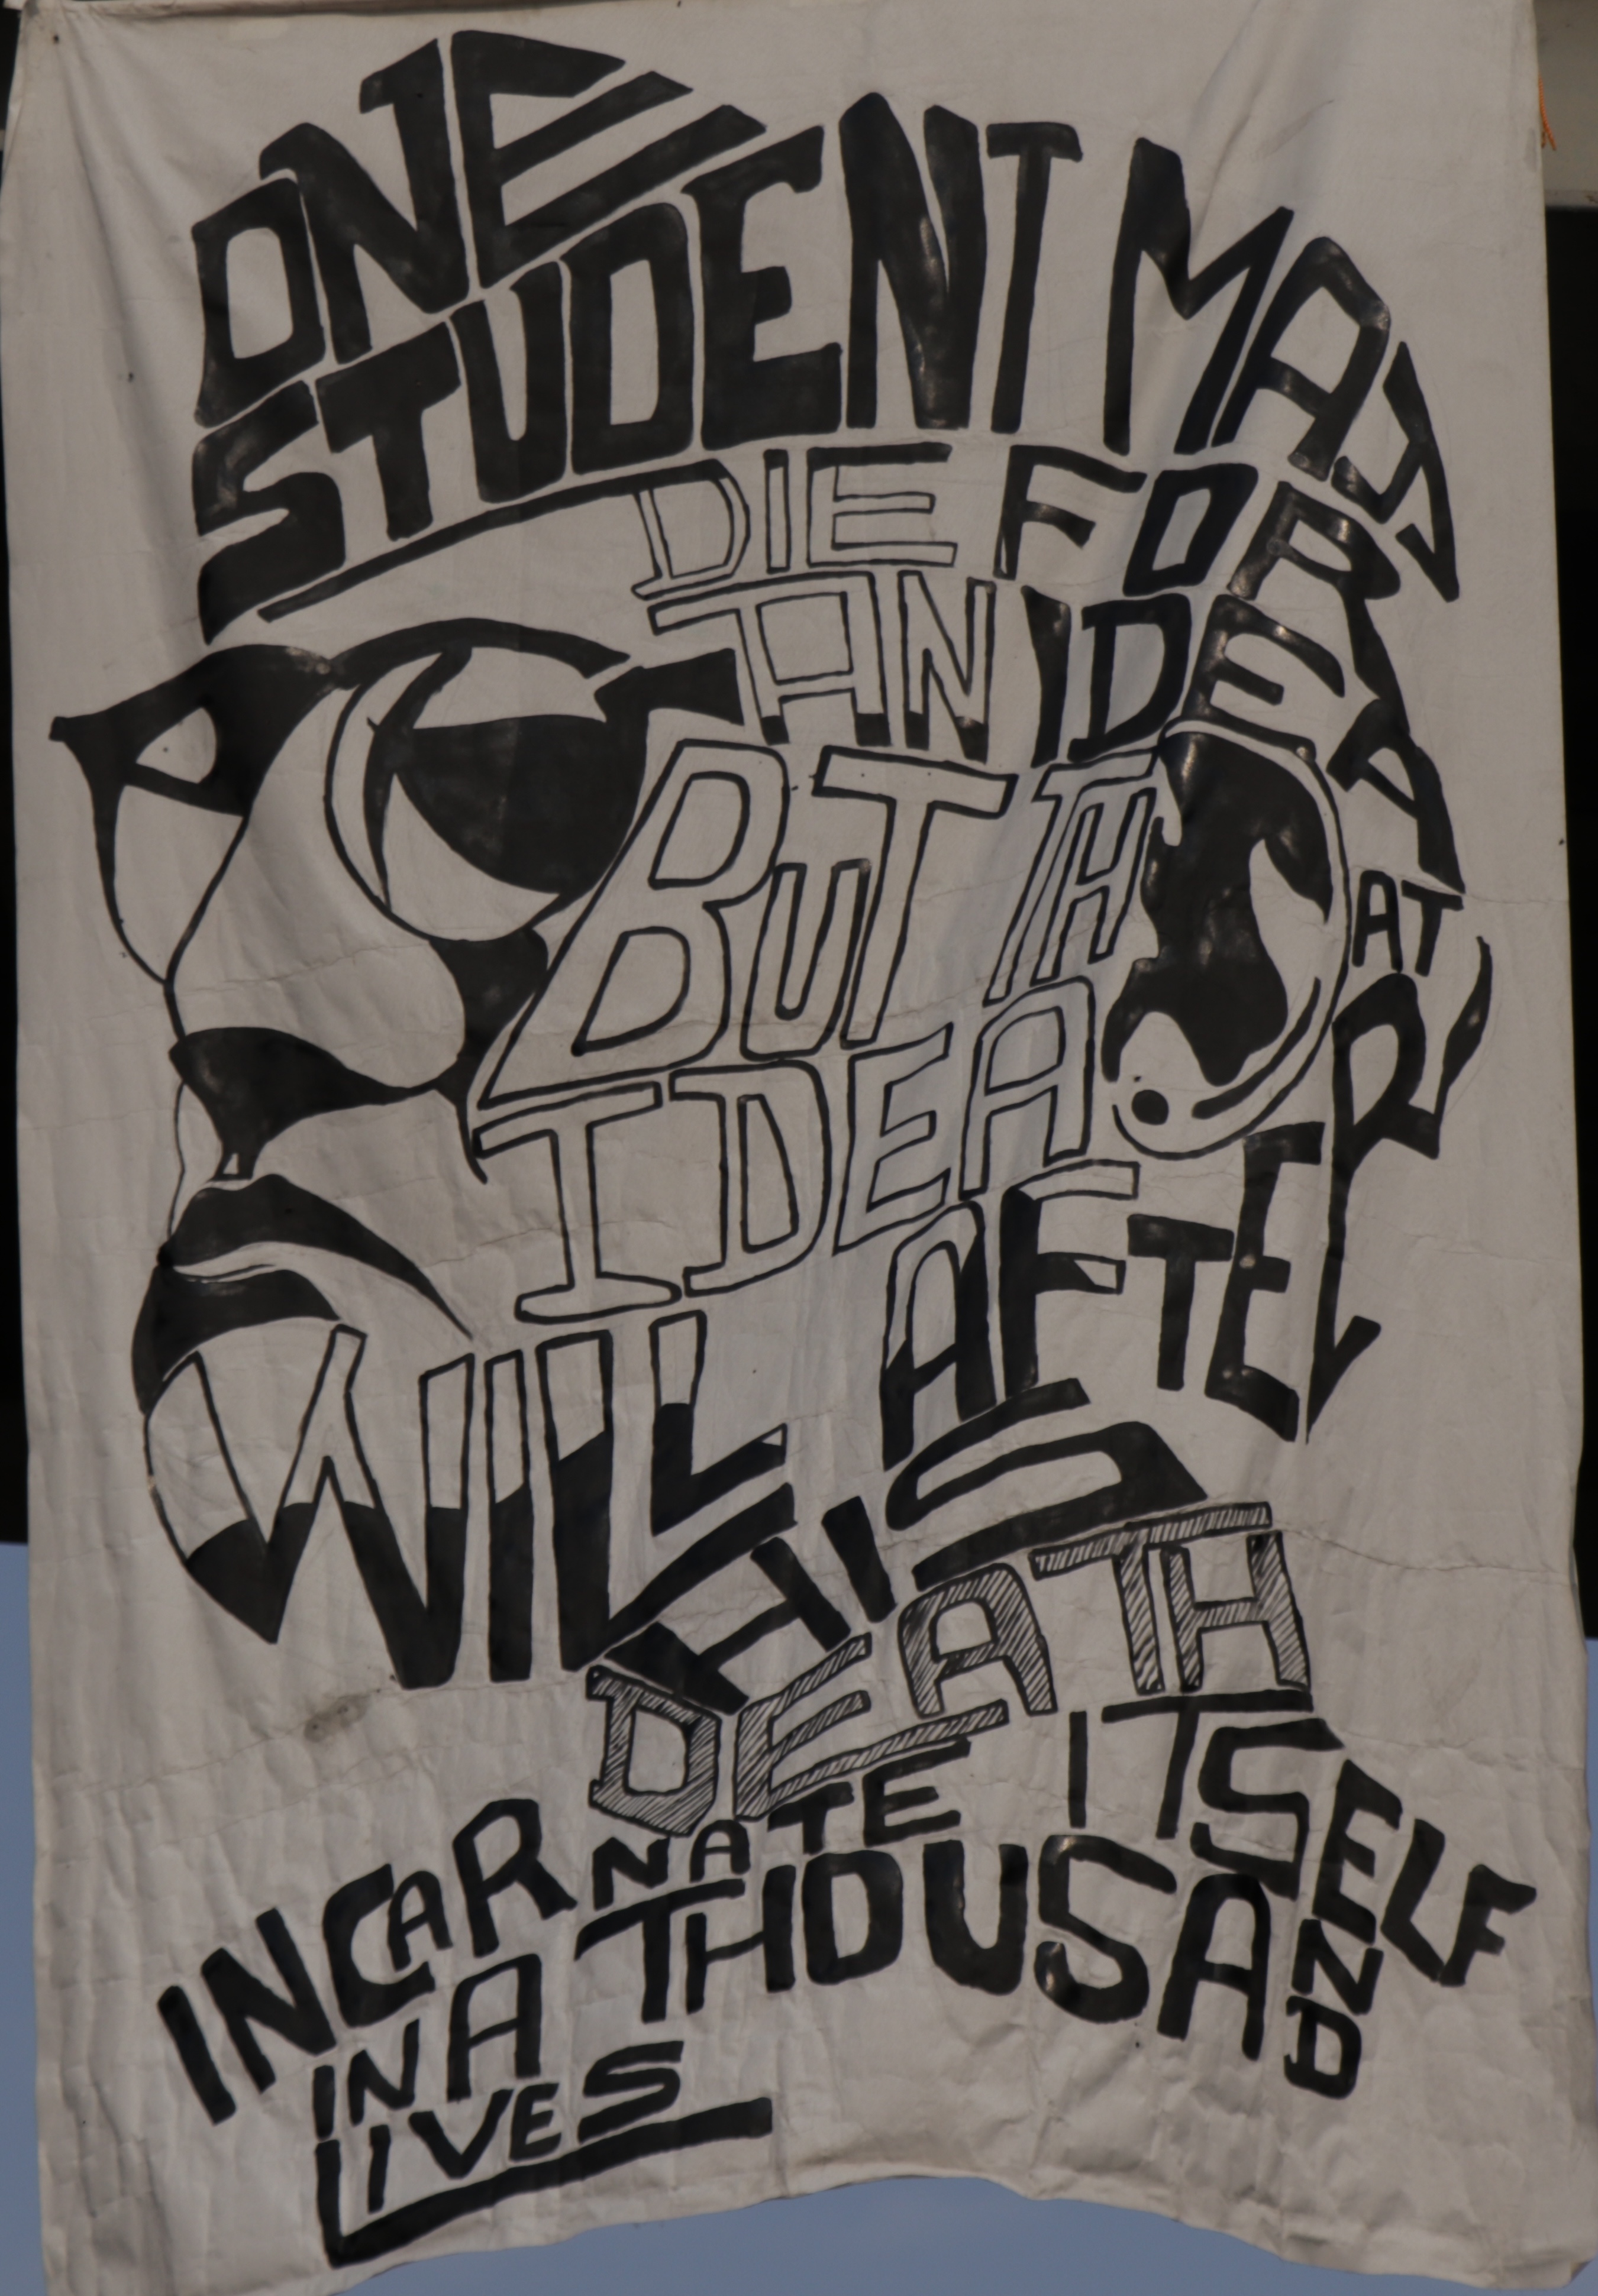 ONE
STUDENT MAY
DIE FOR
AN IDEA
BUT THAT
IDEA
WILL AFTER
HIS
DEATH
INCARNATE ITSELF
IN A THOUSAND
LIVES